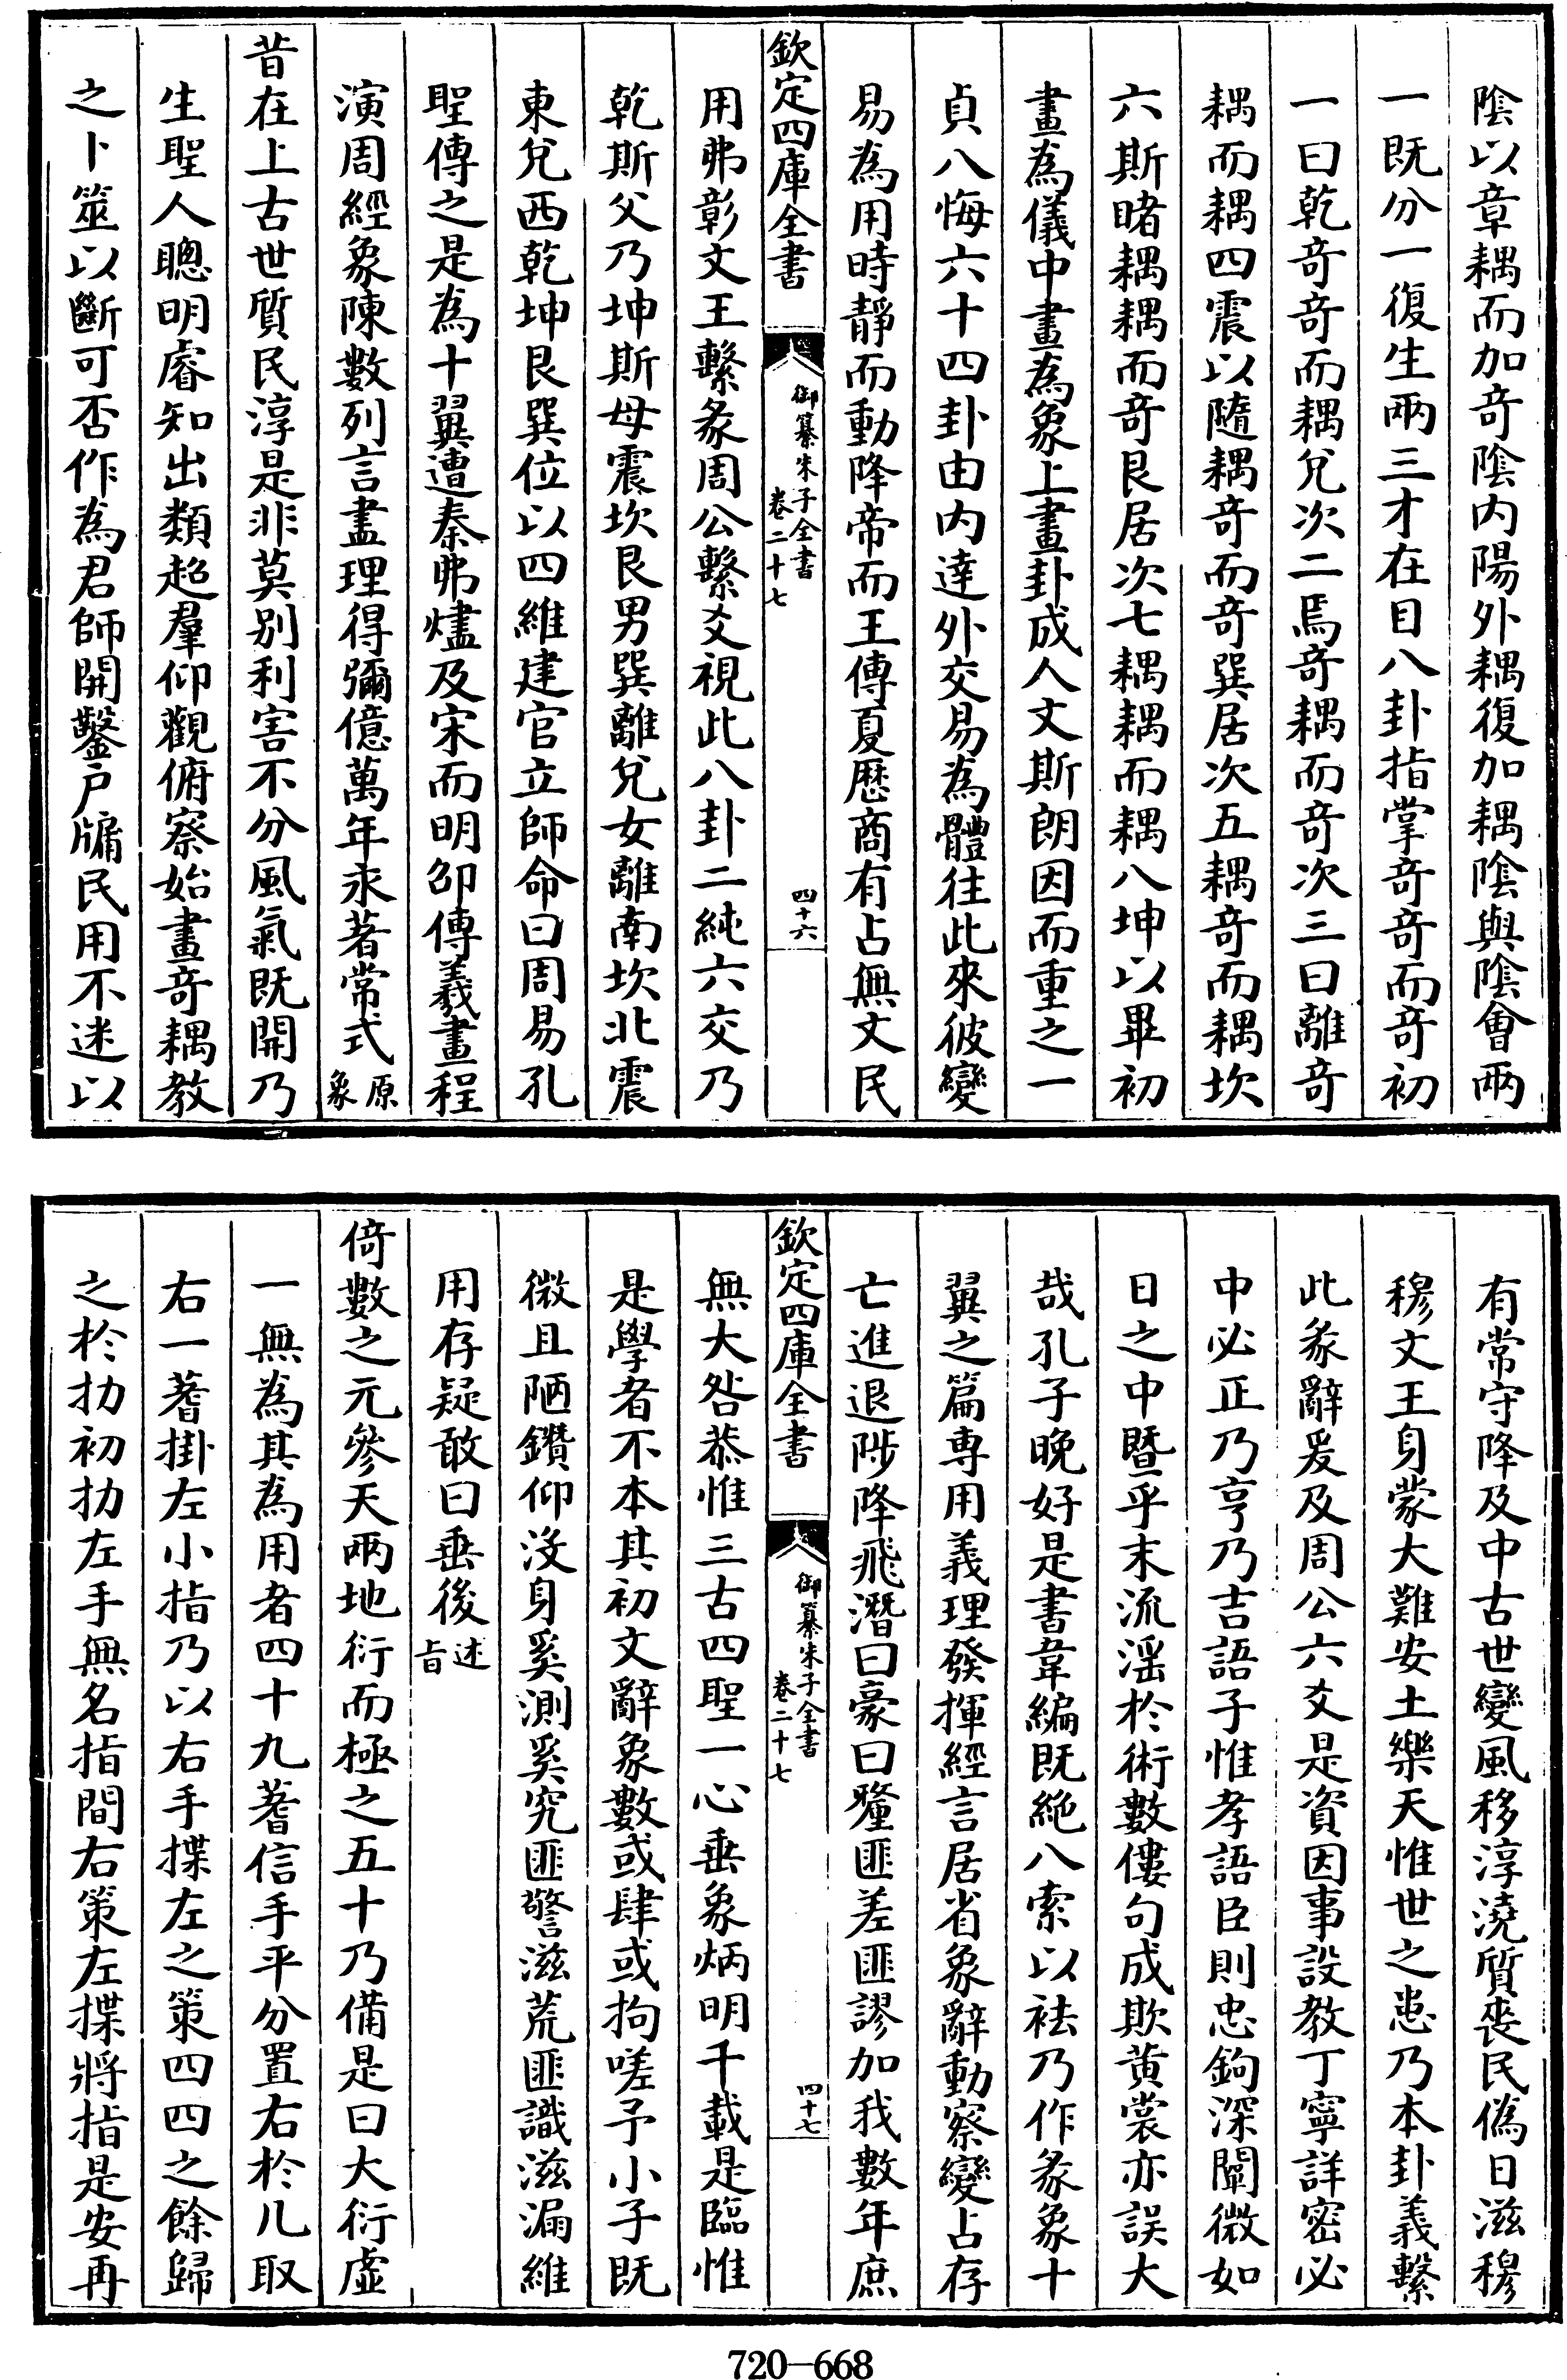 陰以章耦而加奇陰内陽外耦復加耦陰與陰會兩
一既分一復生兩三才在目八卦指掌奇奇而奇初
一曰乾奇奇而耦兌次二焉奇耦而奇次三曰離奇
耦而耦四震以隨耦奇而奇巽居次五耦奇而耦坎
六斯睹耦耦而奇艮居次七耦耦而耦八坤以畢初
畫為儀中畫為象上畫卦成人文斯朗因而重之一
貞八悔六十四卦由内達外交易為體往此來彼變
易為用時靜而動降帝而王傳夏歷商有占無文民
欽定四庫全書
御纂朱子全書
卷二十七
四十六
用弗彰文王繫彖周公繫爻視此八卦二純六交乃
乾斯父乃坤斯母震坎艮男巽離兌女離南坎北震
東兌西乾坤艮巽位以四維建官立師命曰周易孔
聖傳之是為十翼遭秦弗燼及宋而明邵傳羲畫程
演周經象陳數列言盡理得彌億萬年永著常式原象
昔在上古世質民淳是非莫别利害不分風氣既開乃
生聖人聰明睿知出類超羣仰觀俯察始畫奇耦教
之卜筮以斷可否作為君師開鑿戸牖民用不迷以
有常守降及中古世變風移淳澆質喪民偽日滋穆
穆文王身蒙大難安土樂天惟世之患乃本卦義繫
此彖辭爰及周公六爻是資因事設教丁寧詳密必
中必正乃亨乃吉語子惟孝語臣則忠鉤深闡微如
日之中暨乎末流淫於術數僂句成欺黄裳亦誤大
哉孔子晚好是書韋編既絶八索以祛乃作彖象十
翼之篇専用義理發揮經言居省象辭動察變占存
亡進退陟降飛潛曰豪曰釐匪差匪謬加我數年庶
欽定四庫全書
御纂朱子全書
卷二十七
四十七
無大咎恭惟三古四聖一心垂象炳明千載是臨惟
是學者不本其初文辭象數或肆或拘嗟予小子既
微且陋鑽仰沒身奚測奚究匪警滋荒匪識滋漏維
用存疑敢曰垂後述旨
倚數之元參天兩地衍而極之五十乃備是曰大衍虛
一無為其為用者四十九蓍信手平分置右於几取
右一蓍掛左小指乃以右手揲左之策四四之餘歸
之於扐初扐左手無名指間右策左揲將指是安再
720—668